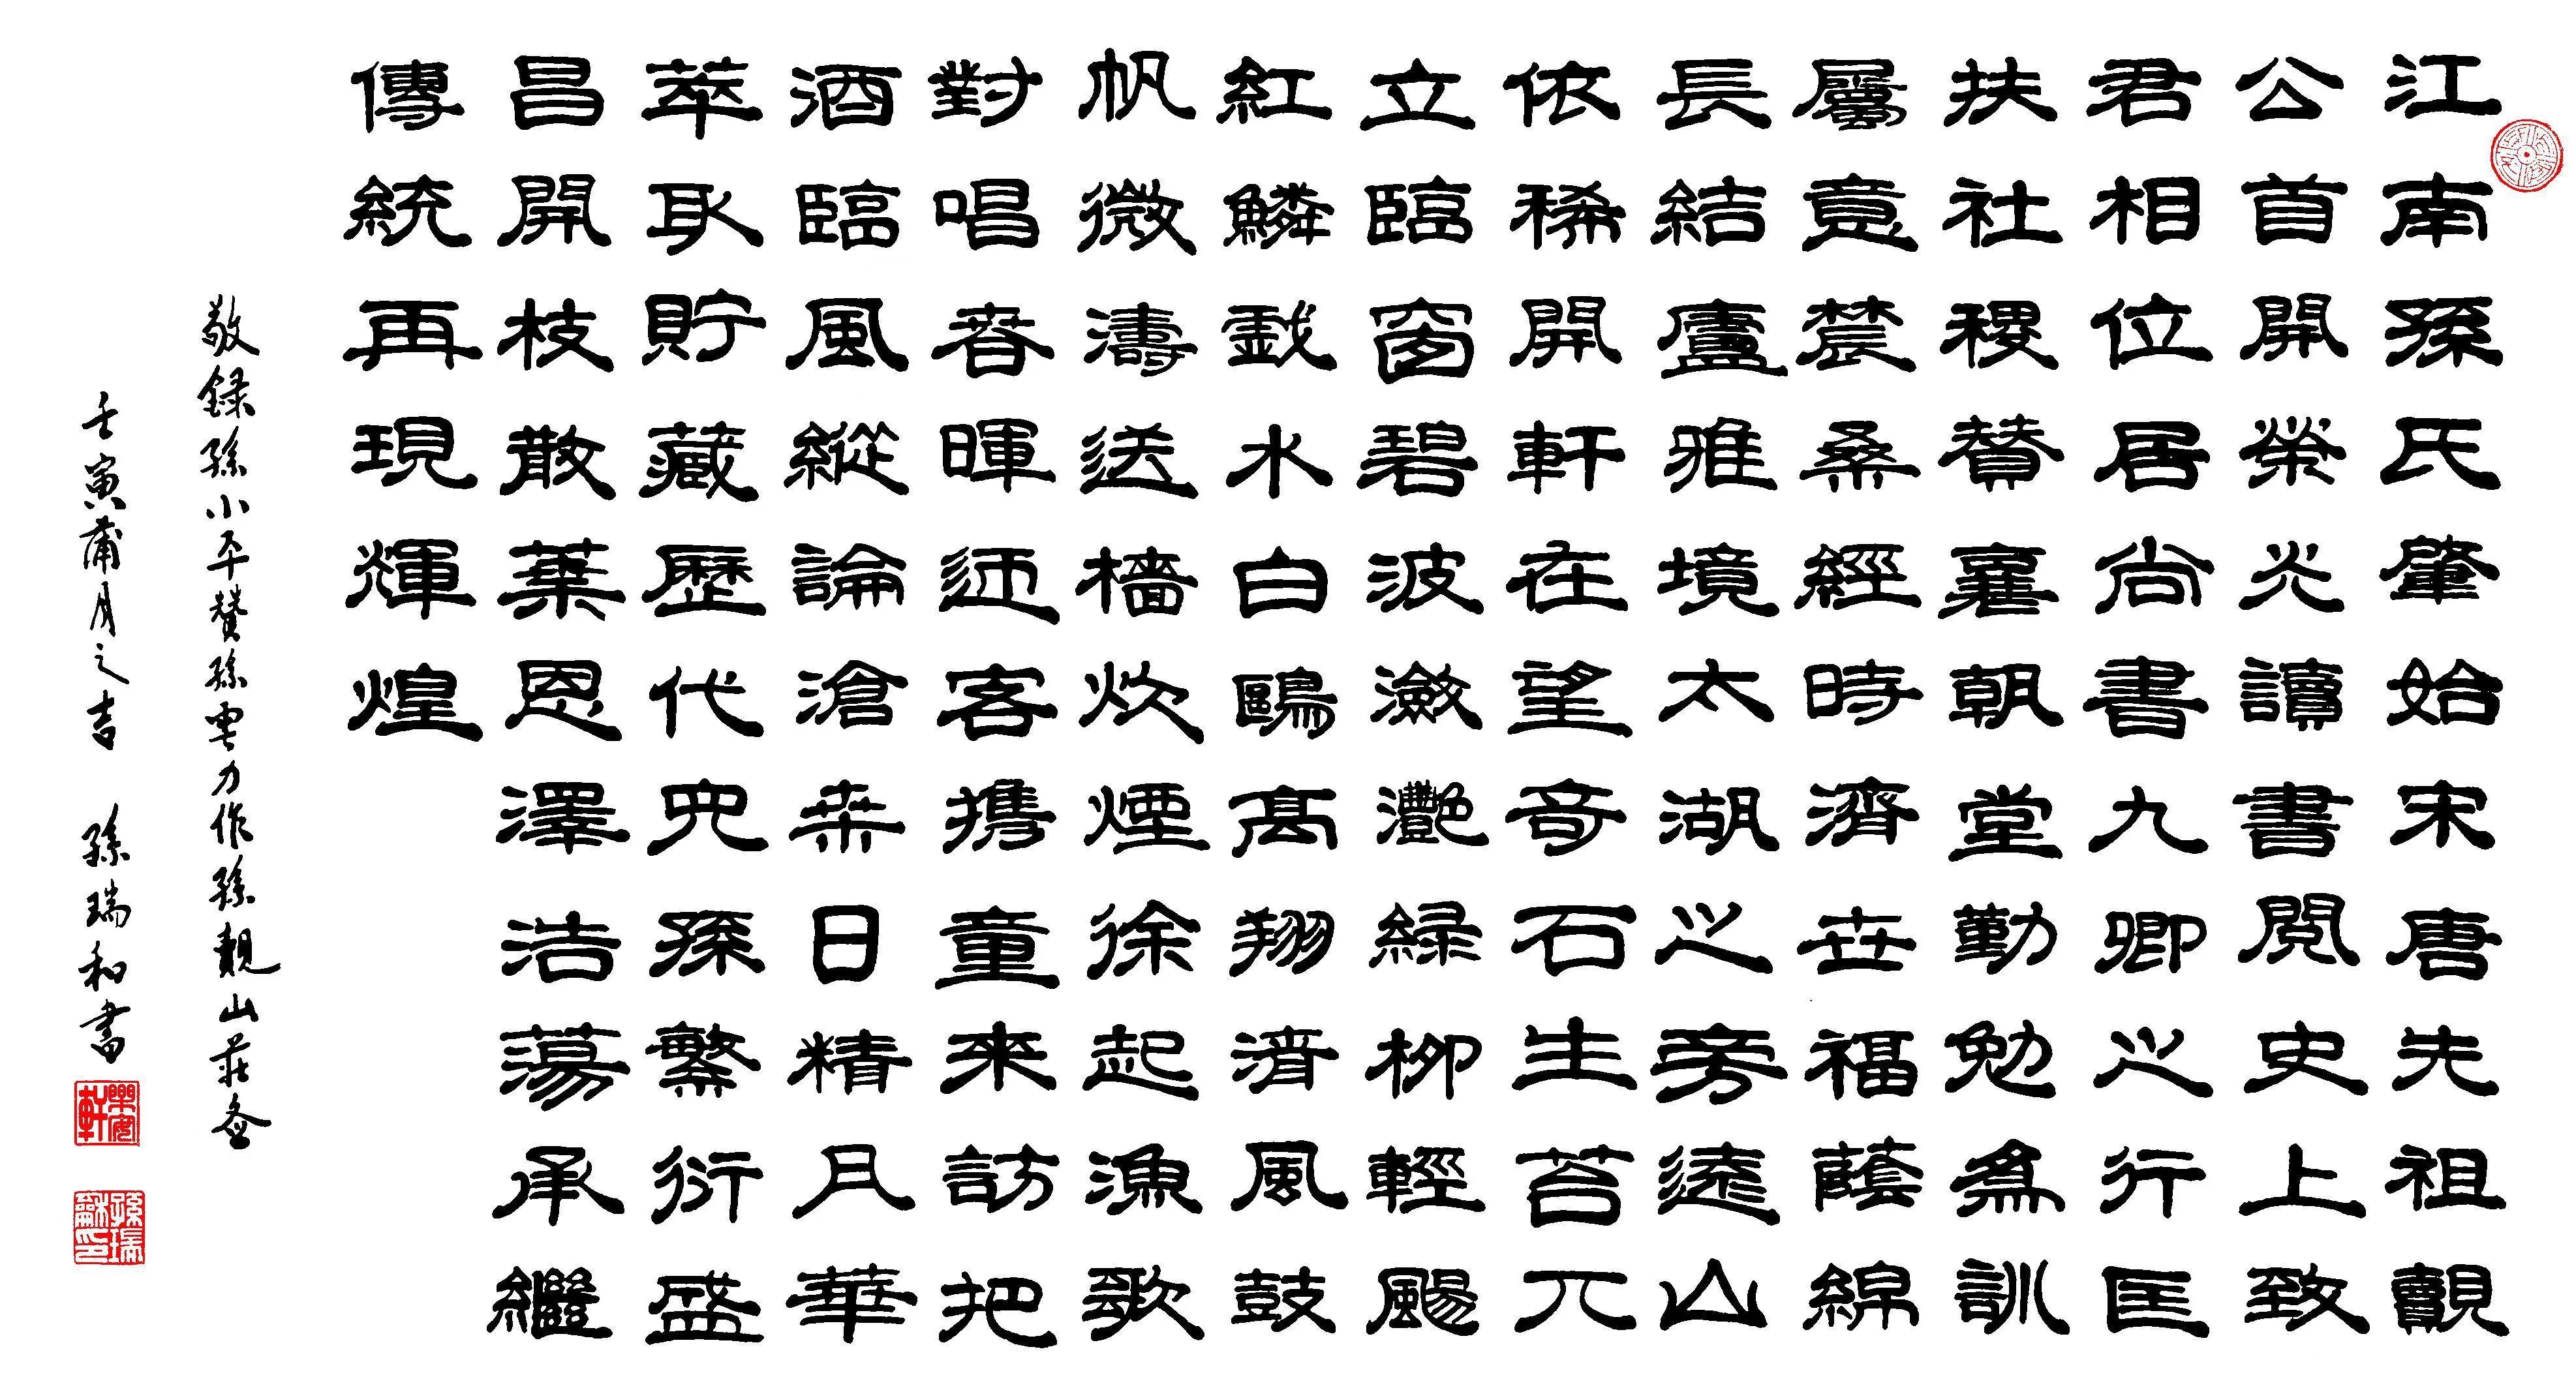 江南孫氏肇始宋唐先祖覿
公首開榮光讀書閱史上致
君相位居尚書九卿之行匡
扶社稷贊襄朝堂勤勉為訓
屬意農桑經時濟世福蔭綿
長結廬雅境太湖之旁遠山
依稀開軒在望奇石生苔兀
立臨窗碧波瀲灩緑柳輕颺
紅鱗戲水白鷗高翔清風鼓
帆微濤送檣炊煙徐起漁歌
對唱春暉迎客携童來訪把
酒臨風縱論滄桑日精月華
萃取貯藏歷代兒孫繁衍盛
昌開枝散葉恩澤浩蕩承繼
傳統再現輝煌
敬録孫小平贊孫雲力作孫覿山莊
壬寅蒲月之吉 孫瑞和書
樂安軒
孫瑞龢印